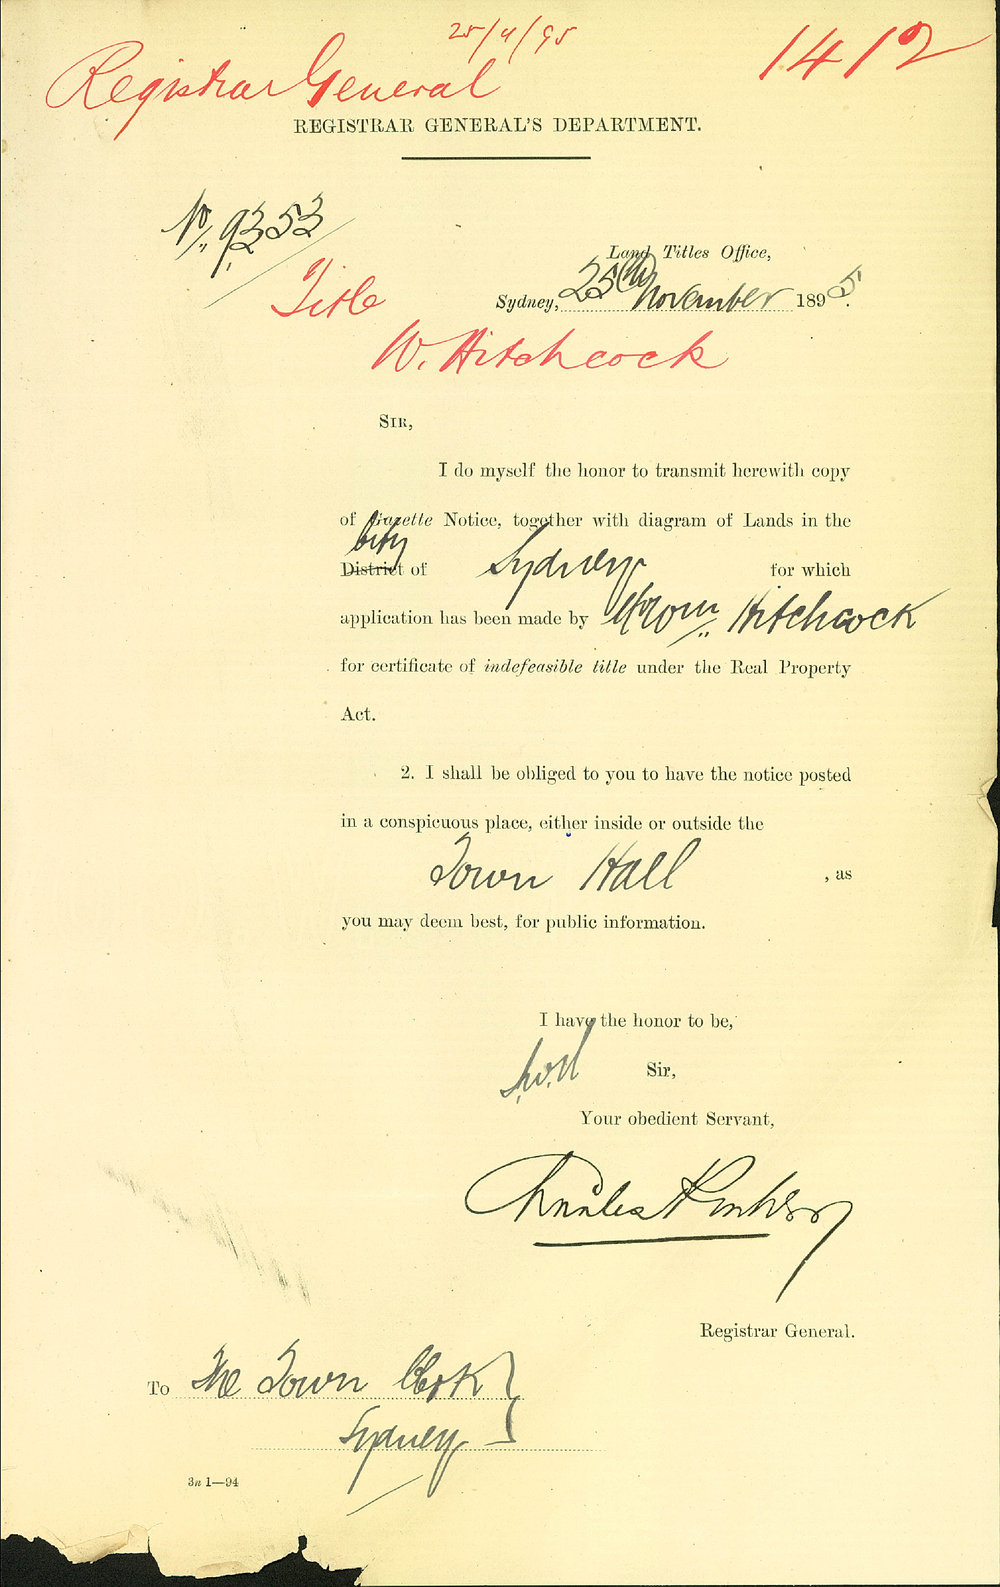 25/4/95
1412
Registrar General
REGISTRAR GENERAL'S DEPARTMENT.
No. 9353
Land Titles Office,
Title
Sydney, 25th November 1895.
W. Hitchcock
SIR,
I do myself the honor to transmit herewith copy
of Gazette Notice, together with diagram of Lands in the
City
District of Sydney for which
application has been made by Hitchcock
for certificate of indefeasible title under the Real Property
Act.
2. I shall be obliged to you to have the notice posted
in a conspicuous place, either inside or outside the
Town Hall , as
you may deem best, for public information.
I have the honor to be,
Sir,
Your obedient Servant,
Charles
Registrar General.
To The Town Clerk
Sydney
3n 1—94